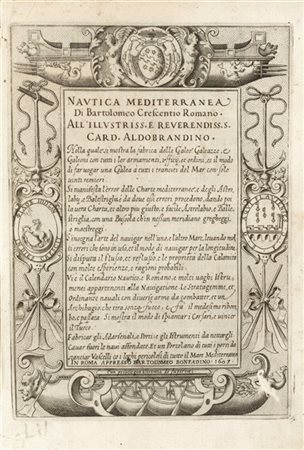 NAVTICA MEDITERRANEA
Di Bartolomeo Crescentio Romano.
ALL'ILLVSTRISS. E REVERENDISS. S.
CARD. ALDOBRANDINO.
Nella quale, si mostra la fabrica delle Galee Galeazze, e
Galeoni con tutti i lor armamenti, ufficij, et ordini, et il modo
di far vogar una Galea a tutti i transiti del Mar con solo
uinti remieri.
Si manifesta l'error delle Charte mediterranee, e de gli Astro
labij, e Balestriglie da doue esti errori procedano, dando poi
la uera Charta, et altro piu giusto, e facile, Astrolabio, e Bale
striglia, con una Bussola ch'en nessun meridiano gregheggi,
o maestreggi.
S'insegna l'arte del nauigar nell'uno, e l'altro Mare, leuando molti
errori che sono in uso, et il modo de nauigar per la longitudine.
Si disputa il flusso, et reflusso, e le proprietà della Calamita
con molte esperienze, e ragioni probabili.
Vi è il Calendario Nautico Romano, e molti uaghi Istru
menti appartenenti alla Nauigatione, Le Stratagemme, et
Ordinanze nauali con diuerse arme da combatter, et un
Archibugio che tira senza fuoco
e passata. Si mostra il modo di spiantar i Corsari, e uincer
il Turco.
Fabricar gli Adarsenali, e Porti, e gli Istrumenti da notargli
Cauar fuori le naui affondate. Et un Portolano di tutti i porti da
Vascelli co i loghi pericolosi di tutto il Mare Mediterraneo
IN ROMA APPRESSO BARTOLOMEO BONFADINO. 1607